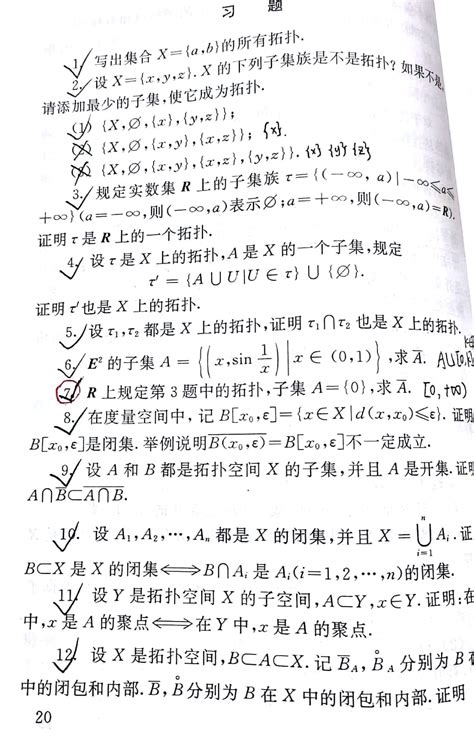 习 题
1. 写出集合 X={a,b}的所有拓扑.
2. 设 X={x,y,z}. X 的下列子集族是不是拓扑? 如果不是,
请添加最少的子集,使它成为拓扑.
(1) {X,∅,{x},{y,z}};
{X,∅,{x,y},{x,z}}; {x}.
{X,∅,{x,y},{x,z},{y,z}}. {x} {y} {z}
3. 规定实数集 R 上的子集族 τ={(−∞, a)|−∞⩽a⩽
+∞}(a=−∞,则(−∞,a)表示∅;a=+∞,则(−∞,a)=R).
证明 τ 是 R 上的一个拓扑.
4. 设 τ 是 X 上的拓扑,A 是 X 的一个子集,规定
τ′={A∪U|U∈τ}∪{∅}.
证明 τ′也是 X 上的拓扑.
5. 设 τ₁,τ₂ 都是 X 上的拓扑,证明 τ₁∩τ₂ 也是 X 上的拓扑.
6. E² 的子集 A={(x,sin 1/x)|x∈(0,1)},求 A̅. A∪
7. R 上规定第 3 题中的拓扑,子集 A={0},求 A̅. [0,+∞)
8. 在度量空间中, 记 B[x₀,ε]={x∈X|d(x,x₀)⩽ε}. 证明
B[x₀,ε]是闭集. 举例说明B̅(̅x̅₀̅,̅ε̅)̅=B[x₀,ε]不一定成立.
9. 设 A 和 B 都是拓扑空间 X 的子集,并且 A 是开集. 证明
A∩B̅⊂A̅∩̅B̅.
10. 设 A₁,A₂,⋯,Aₙ 都是 X 的闭集,并且 X=⋃ⁿᵢ₌₁Aᵢ. 证
B⊂X 是 X 的闭集⟺B∩Aᵢ 是 Aᵢ(i=1,2,⋯,n)的闭集.
11. 设 Y 是拓扑空间 X 的子空间, A⊂Y, x∈Y. 证明:在
中, x 是 A 的聚点⟺在 Y 中,x 是 A 的聚点.
12. 设 X 是拓扑空间,B⊂A⊂X. 记 B̅_A, B̊_A 分别为 B 在
中的闭包和内部. B̅, B̊分别为 B 在 X 中的闭包和内部. 证明
20